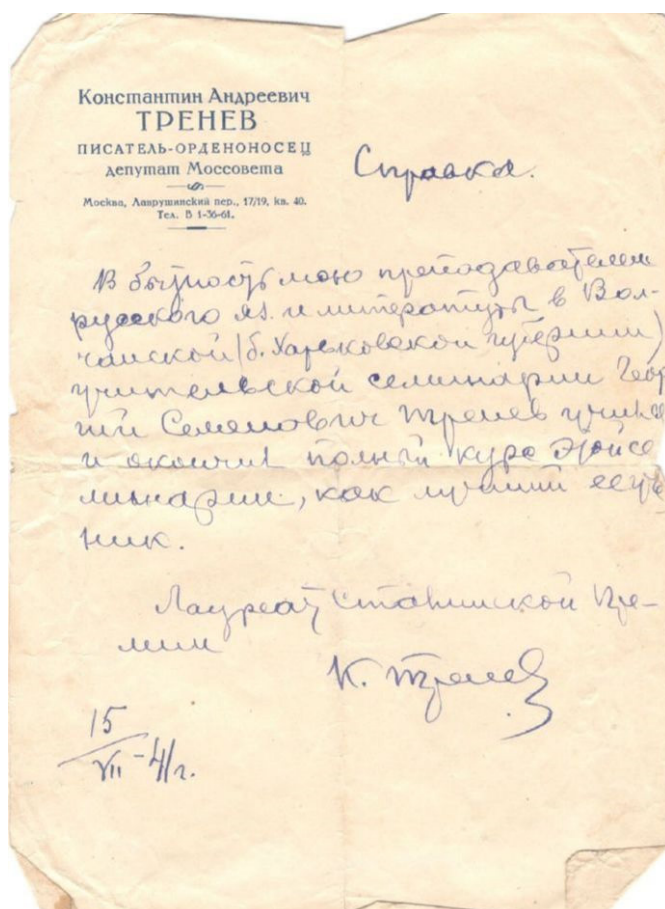 Константин Андреевич
ТРЕНЕВ
ПИСАТЕЛЬ-ОРДЕНОНОСЕЦ
депутат Моссовета
Москва, Лаврушинский пер., 17/19, кв. 40.
Тел. В 1-36-61.
Справка.
В бытность мою преподавателем
русского яз. и литературы в Вол-
чанской (б. Харьковской губернии)
учительской семинарии Геор
гий Семенович Тренев учился
и окончил полный курс этой се
минарии, как лучший ее уче
ник.
Лауреат Сталинской пре-
мии
К. Тренев
15
VII - 41 г.